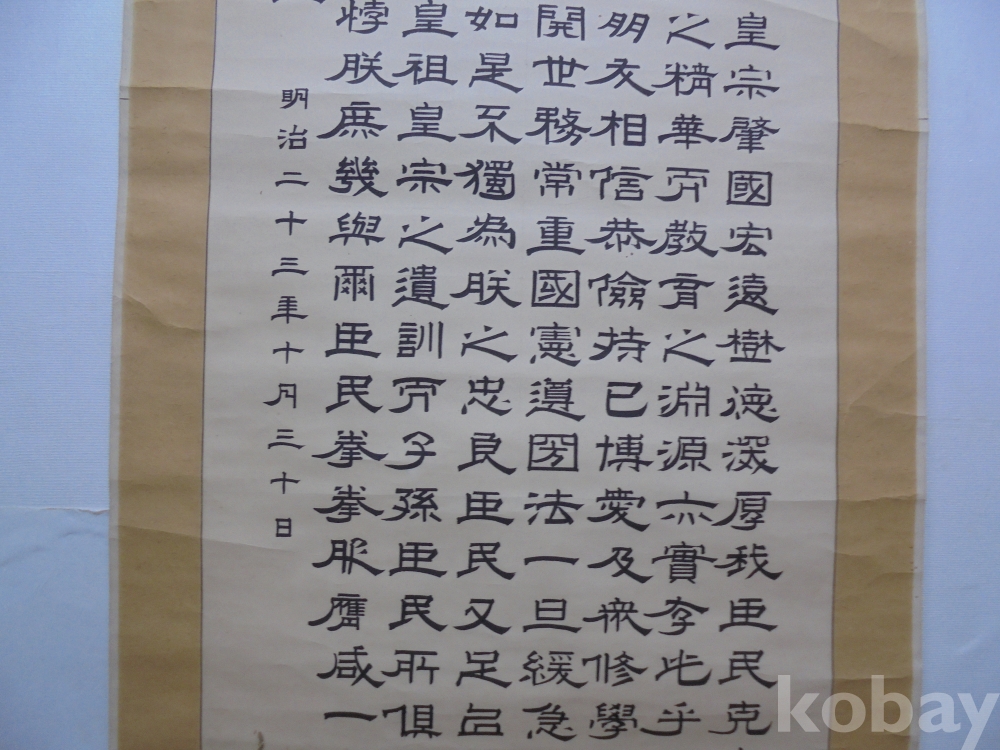 皇宗肇國宏遠樹德深厚我臣民克
之精華而教育之淵源亦實存此乎
朋友相信恭儉持己博愛及衆修學
開世務常重國憲遵圀法一旦緩急
如是不獨為朕之忠良臣民又足以
皇祖皇宗之遺訓而子孫臣民所俱
悖朕庶幾與爾臣民拳拳服膺咸一
明治二十三年十月三十日
kobay